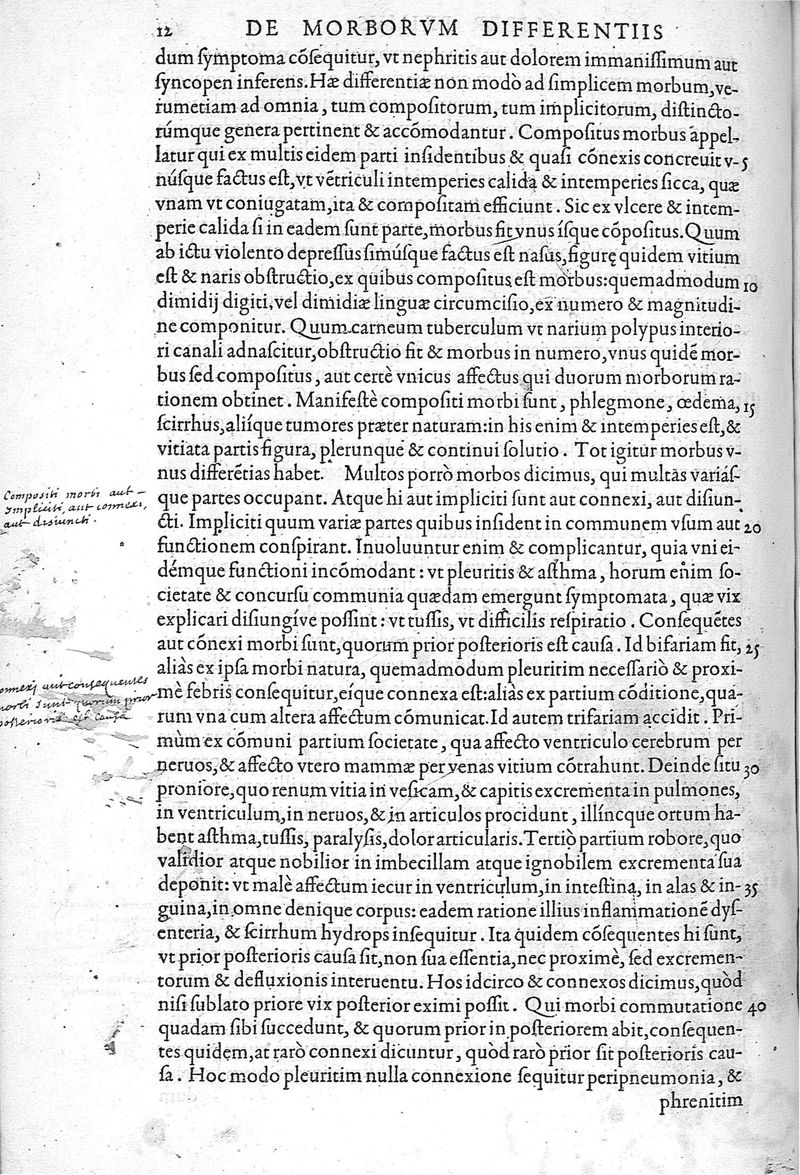 12 DE MORBORVM DIFFERENTIIS
dum ſymptoma cõſequitur, vt nephritis aut dolorem immaniſſimum aut
ſyncopen inferens. Hæ differentiæ non modò ad ſimplicem morbum, ve-
rumetiam ad omnia, tum compoſitorum, tum implicitorum, diſtincto-
rúmque genera pertinent & accõmodantur. Compoſitus morbus appel-
latur qui ex multis eidem parti inſidentibus & quaſi cõnexis concreuit v- 5
núſque factus eſt, vt vẽtriculi intemperies calida & intemperies ſicca, quæ
vnam vt coniugatam, ita & compoſitam efficiunt. Sic ex vlcere & intem-
perie calida ſi in eadem ſunt parte, morbus fit vnus íſque cõpoſitus. Quum
ab ictu violento depreſſus ſimúſque factus eſt naſus, figurę quidem vitium
eſt & naris obſtructio, ex quibus compoſitus eſt morbus: quemadmodum 10
dimidij digiti, vel dimidiæ linguæ circumciſio, ex numero & magnitudi-
ne componitur. Quum carneum tuberculum vt narium polypus interio-
ri canali adnaſcitur, obſtructio fit & morbus in numero, vnus quidẽ mor-
bus ſed compoſitus, aut certè vnicus affectus qui duorum morborum ra-
tionem obtinet. Manifeſtè compoſiti morbi ſunt, phlegmone, œdema, 15
ſcirrhus, aliíque tumores præter naturam: in his enim & intemperies eſt, &
vitiata partis figura, plerunque & continui ſolutio. Tot igitur morbus v-
nus differẽtias habet. Multos porrò morbos dicimus, qui multas variáſ-
que partes occupant. Atque hi aut impliciti ſunt aut connexi, aut diſiun-
cti. Impliciti quum variæ partes quibus inſident in communem vſum aut 20
functionem conſpirant. Inuoluuntur enim & complicantur, quia vni ei-
démque functioni incõmodant: vt pleuritis & aſthma, horum enim ſo-
cietate & concurſu communia quædam emergunt ſymptomata, quæ vix
explicari diſiungíve poſſint: vt tuſſis, vt difficilis reſpiratio. Conſequẽtes
aut cõnexi morbi ſunt, quorum prior poſterioris eſt cauſa. Id bifariam fit, 25
aliàs ex ipſa morbi natura, quemadmodum pleuritim neceſſariò & proxi-
mè febris conſequitur, eíque connexa eſt: aliàs ex partium cõditione, qua-
rum vna cum altera affectum cõmunicat. Id autem trifariam accidit. Pri-
mùm ex cõmuni partium ſocietate, qua affecto ventriculo cerebrum per
neruos, & affecto vtero mammæ per venas vitium cõtrahunt. Deinde ſitu 30
proniore, quo renum vitia in veſicam, & capitis excrementa in pulmones,
in ventriculum, in neruos, & in articulos procidunt, illíncque ortum ha-
bent aſthma, tuſſis, paralyſis, dolor articularis. Tertiò partium robore, quo
validior atque nobilior in imbecillam atque ignobilem excrementa ſua
deponit: vt malè affectum iecur in ventriculum, in inteſtina, in alas & in- 35
guina, in omne denique corpus: eadem ratione illius inflammationẽ dyſ-
enteria, & ſcirrhum hydrops inſequitur. Ita quidem cõſequentes hi ſunt,
vt prior poſterioris cauſa ſit, non ſua eſſentia, nec proximè, ſed excremen-
torum & defluxionis interuentu. Hos idcirco & connexos dicimus, quòd
niſi ſublato priore vix poſterior eximi poſſit. Qui morbi commutatione 40
quadam ſibi ſuccedunt, & quorum prior in poſteriorem abit, conſequen-
tes quidem, at rarò connexi dicuntur, quòd rarò prior ſit poſterioris cau-
ſa. Hoc modo pleuritim nulla connexione ſequitur peripneumonia, &
phrenitim
Compositi morbi aut
Impliciti, aut connexi,
aut disiuncti.
onnexi aut consequentes
morbi sunt quorum prior
posterioris est causa